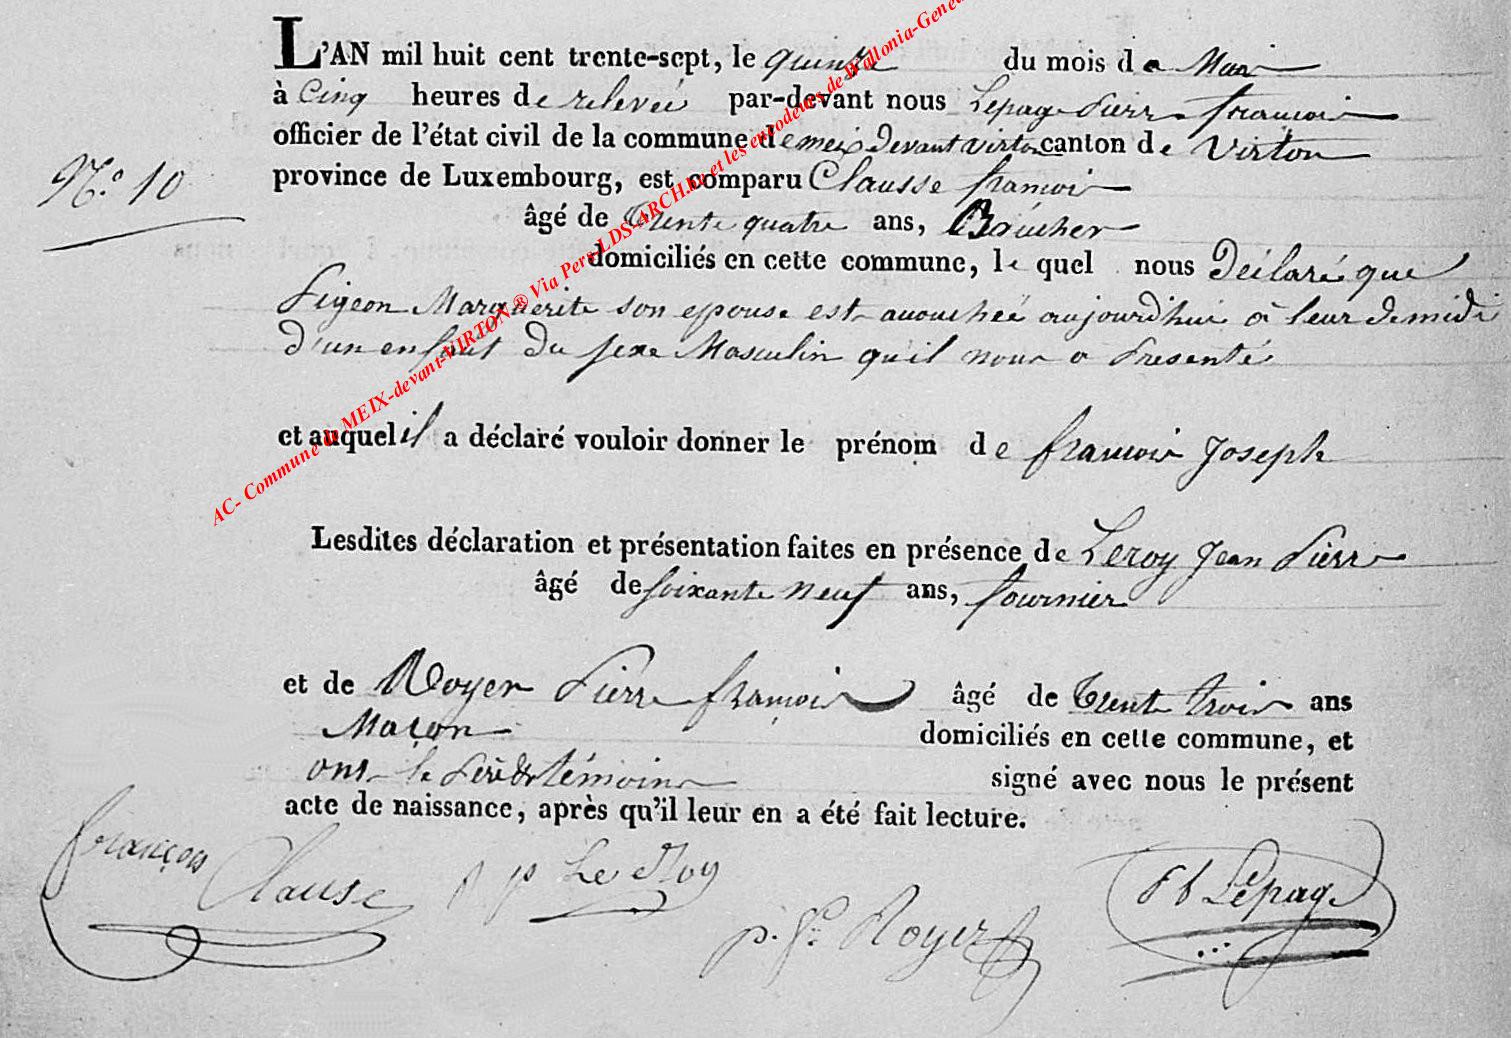 L'AN mil huit cent trente-sept, le quinze du mois de Mai
à Cinq heures de relevée par-devant nous Lepage Pierre françois
officier de l'état civil de la commune de meix devant virton canton de Virton
N.º 10
province de Luxembourg, est comparu Clausse françois
âgé de trente quatre ans,
domiciliés en cette commune, le quel nous déclaré que
Pigeon Marguerite son epouse est accouchée aujourd'hui à leur de midi
d'un enfant du sexe Masculin qu'il nous a Presenté
et auquel il a déclaré vouloir donner le prénom de françois Joseph
Lesdites déclaration et présentation faites en présence de Leroy Jean Pierre
âgé de soixante neuf ans, fournier
et de Royer Pierre françois âgé de trent trois ans
Maçon domiciliés en cette commune, et
ont le Père & témoins signé avec nous le présent
acte de naissance, après qu'il leur en a été fait lecture.
françois Clause
Le Roy
p. f. Royer
Lepage
AC- Commune de MEIX-devant-VIRTON ® Via Pers-LDS-ARCH.be et les encodeurs de Wallonia-Genea